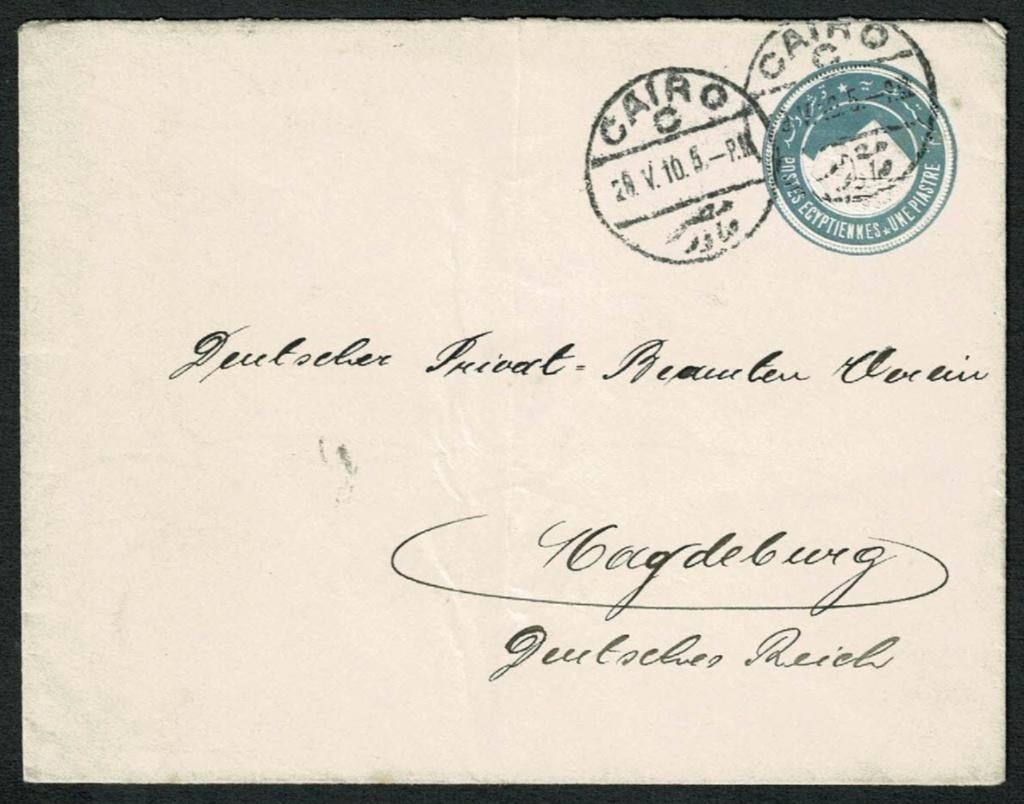 CAIRO
C
28.V.10.5.-P.M
CAIRO
C
V.10.5.-
POSTES EGYPTIENNES ★ UNE PIASTRE
Deutscher Privat-Beamten Verein
Magdeburg
Deutsches Reich